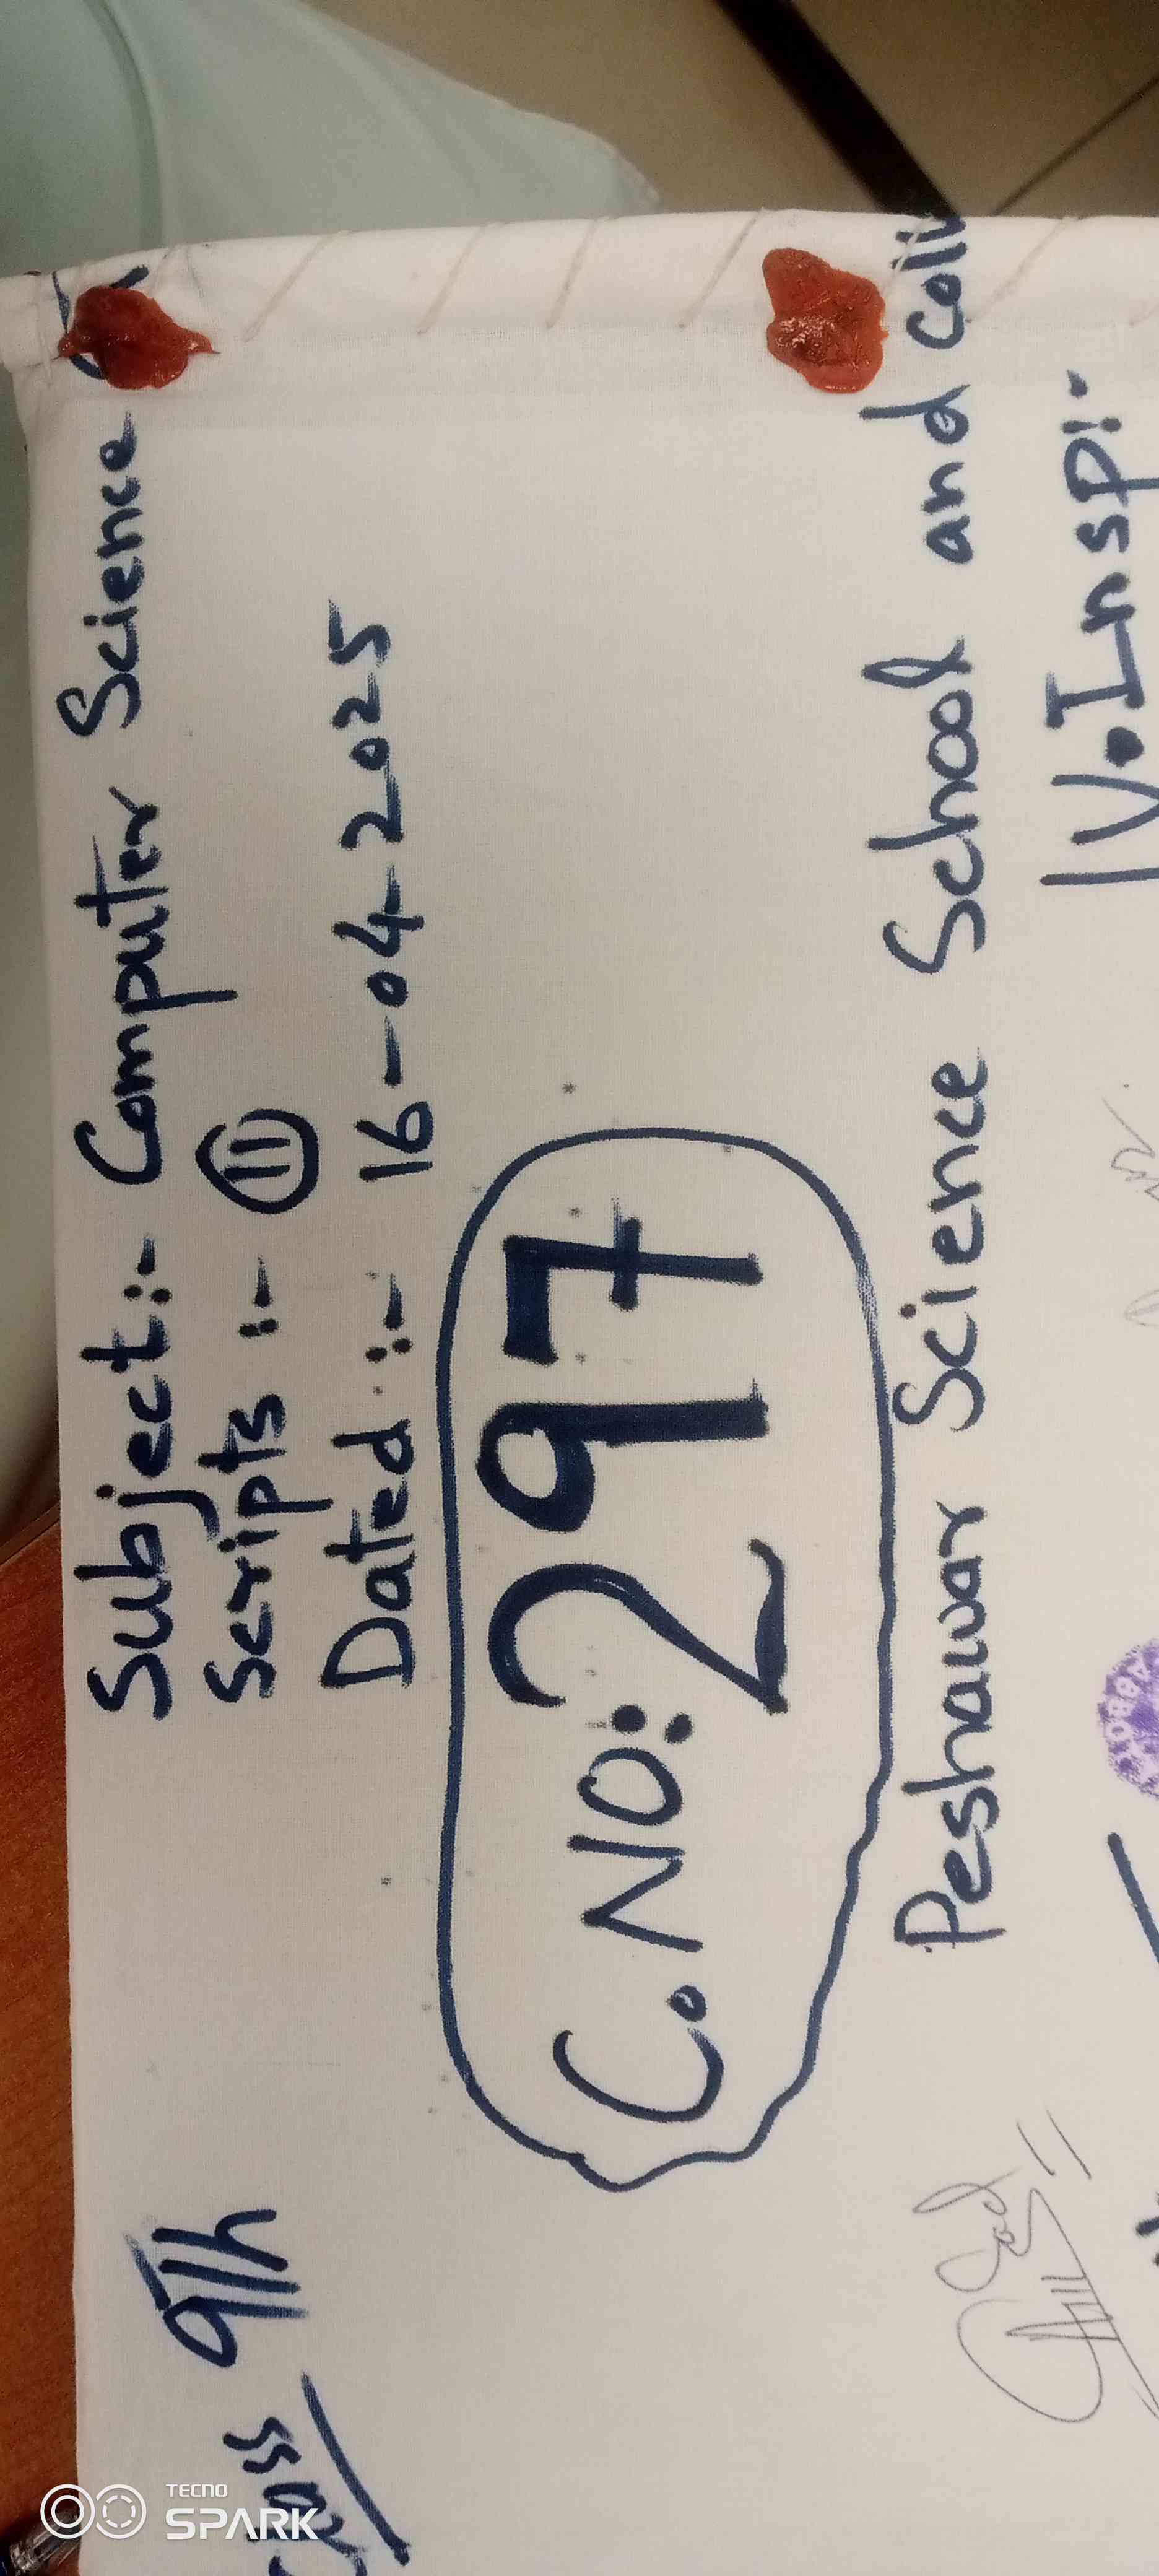 Class 9th
Subject:- Computer Science
Scripts :- 11
Dated :- 16-04-2025
C. NO: 297
Peshawar Science School and
V. Insp:-
TECNO
SPARK